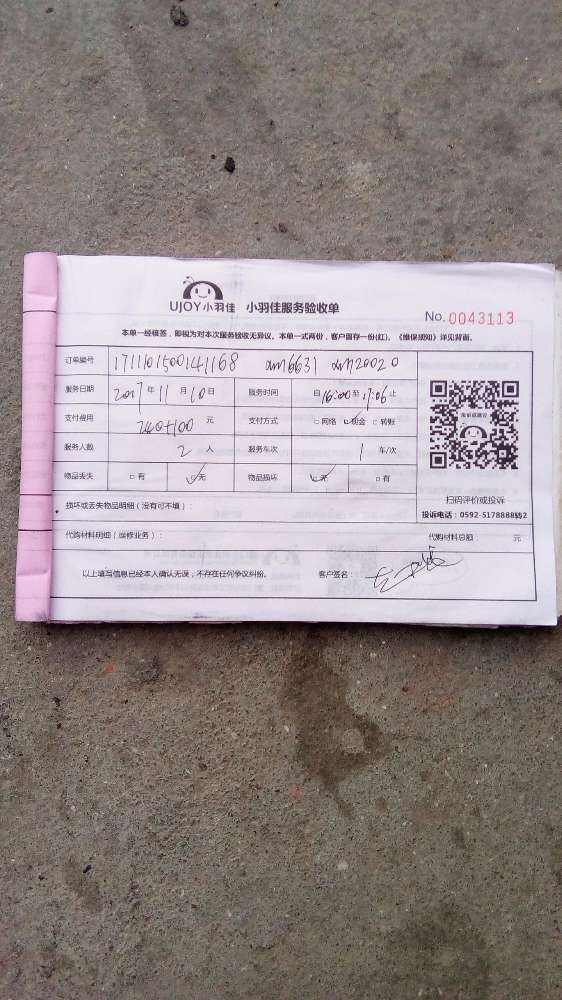 UJOY小羽佳 小羽佳服务验收单
No. 0043113
本单一经稽签，即视为对本次服务验收无异议，本单一式两份，客户留存一份(红)，《维保须知》详见背面。
订单编号 1711101500141168 xm6631 xm20020
服务日期 2017年11月10日 服务时间 自16:00至17:06止
支付费用 240+100 元 支付方式 □网络 ☑现金 □转账
服务人数 2 人 服务车次 1 车/次
物品丢失 □有 ☑无 物品损坏 ☑无 □有
扫码评价或投诉
投诉电话：0592-5178888转2
损坏或丢失物品明细（没有可不填）：
代购材料明细（维修业务）： 代购材料总额： 元
以上填写信息已经本人确认无误，不存在任何争议纠纷。 客户签名：